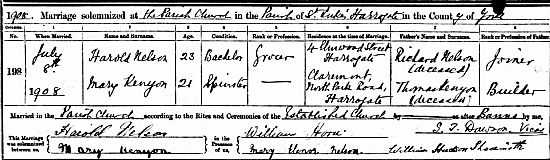 1908. Marriage solemnized at the Parish Church in the Parish of St Luke's Harrogate in the County of York
No. When Married. Name and Surname. Age. Condition. Rank or Profession. Residence at the time of Marriage. Father's Name and Surname. Rank or Profession of Father.
198 July 8th 1908 Harold Nelson 23 Bachelor Grocer 4 Street Harrogate Richard Nelson (deceased) Joiner
Mary Kenyon 21 Spinster Claremont, North Park Road, Harrogate Thomas Kenyon (deceased) Builder
Married in the Parish Church according to the Rites and Ceremonies of the Established Church by or after Banns by me,
This Marriage was solemnized between us, Harold Nelson Mary Kenyon in the Presence of us, William Horn Mary Elenor Nelson William Hudson
Dawson Vicar